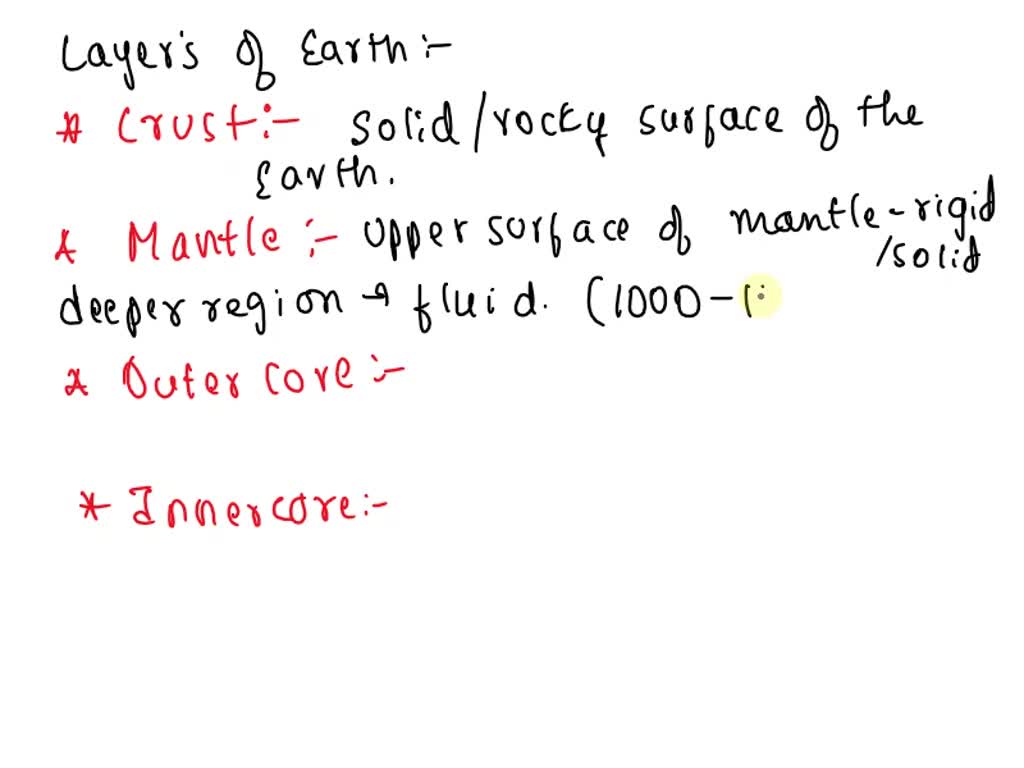 Layer's of Earth :-
* Crust :- solid/rocky surface of the
Earth.
* Mantle :- Upper surface of mantle - rigid
/solid
deeper region → fluid. (1000 - 1
* Outer core :-
* Innercore :-